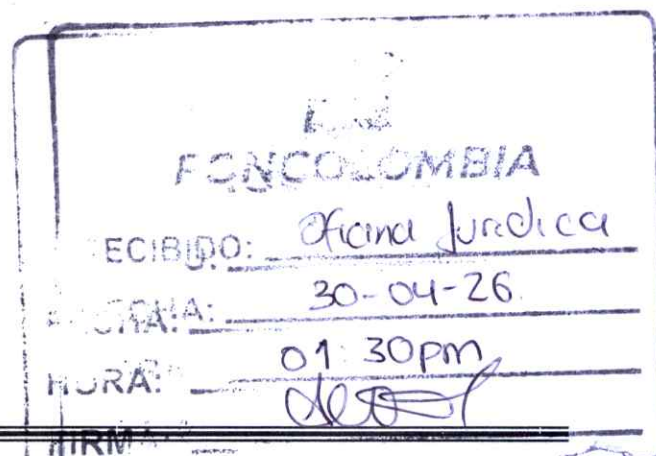 FONCOLOMBIA
RECIBIDO: Oficina Juridica
FECHA: 30-04-26.
HORA: 01:30pm
FIRMA: